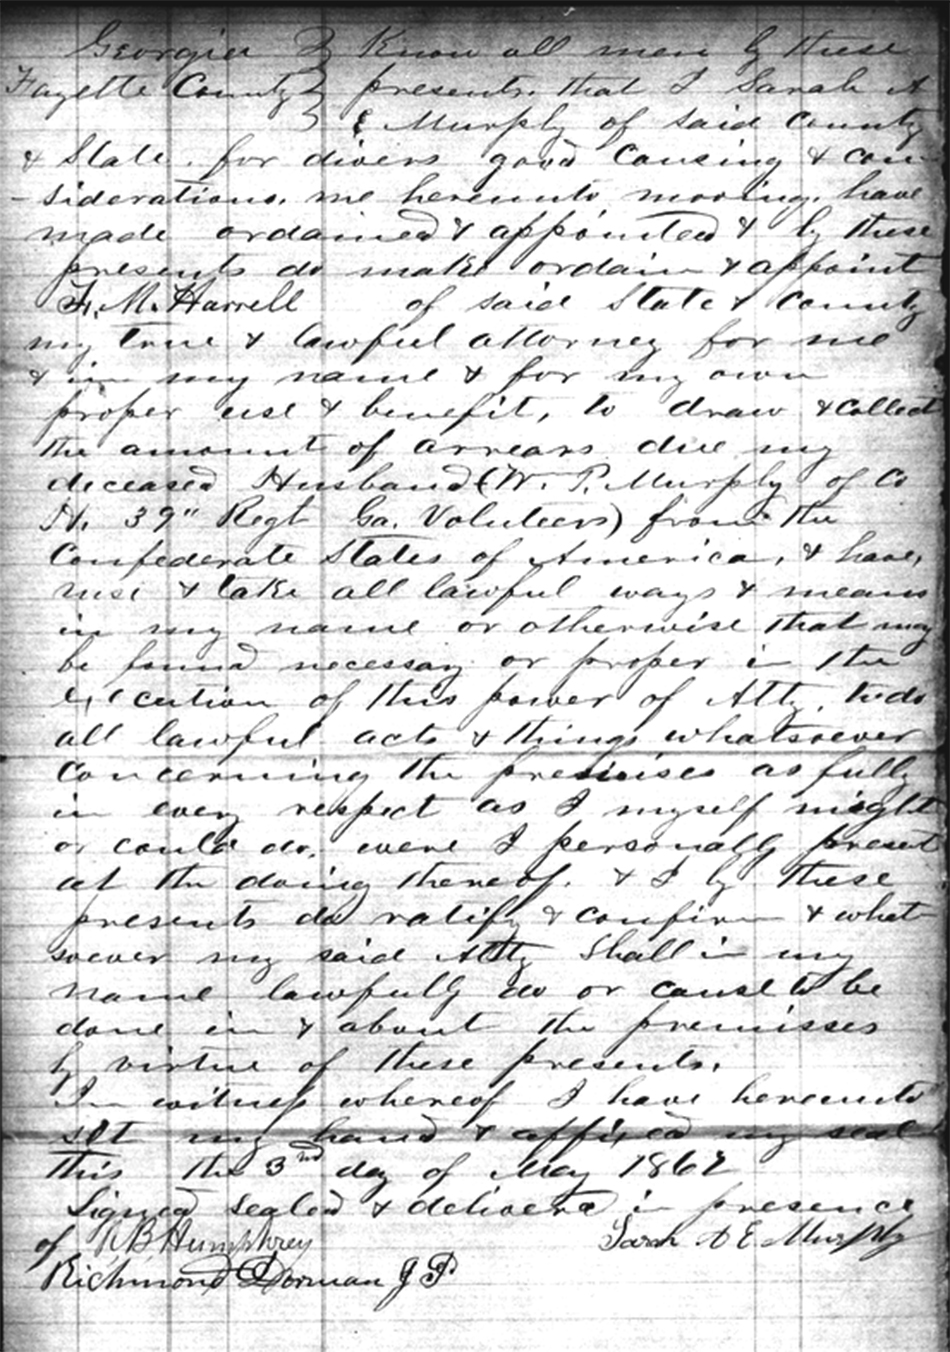 Georgia } Know all men by these
Fayette County } presents. that I Sarah A
} E Murphy of said County
& State. for divers good Causing & con
-siderations. me hereunto moving. have
made ordained & appointed & by these
presents do make ordain & appoint
F. M. Harrell of said State & County
my true & lawful attorney for me
& in my name & for my own
proper use & benefit, to draw & collect
the amount of arrears due my
deceased Husband (W. P. Murphy of Co
H. 39" Regt Ga. Voluteers) from the
Confederate States of America, & have,
use & take all lawful ways & means
in my name or otherwise that may
be found necessary or proper in the
execution of this power of Atty, to do
all lawful acts & things whatsoever
concerning the premises as fully
in every respect as I myself might
or could do. were I personally present
at the doing thereof. & I by these
presents do ratify & confirm & what
soever my said Atty Shall in my
name lawfully do or cause to be
done in & about the premisses
by virtue of these presents.
In witness whereof I have hereunto
set my hand & affixed my seal
this the 3rd day of May 1862
Signed sealed & delivered in presence
of R B Humphrey Sarah A E Murphy
Richmond Dorman J P.